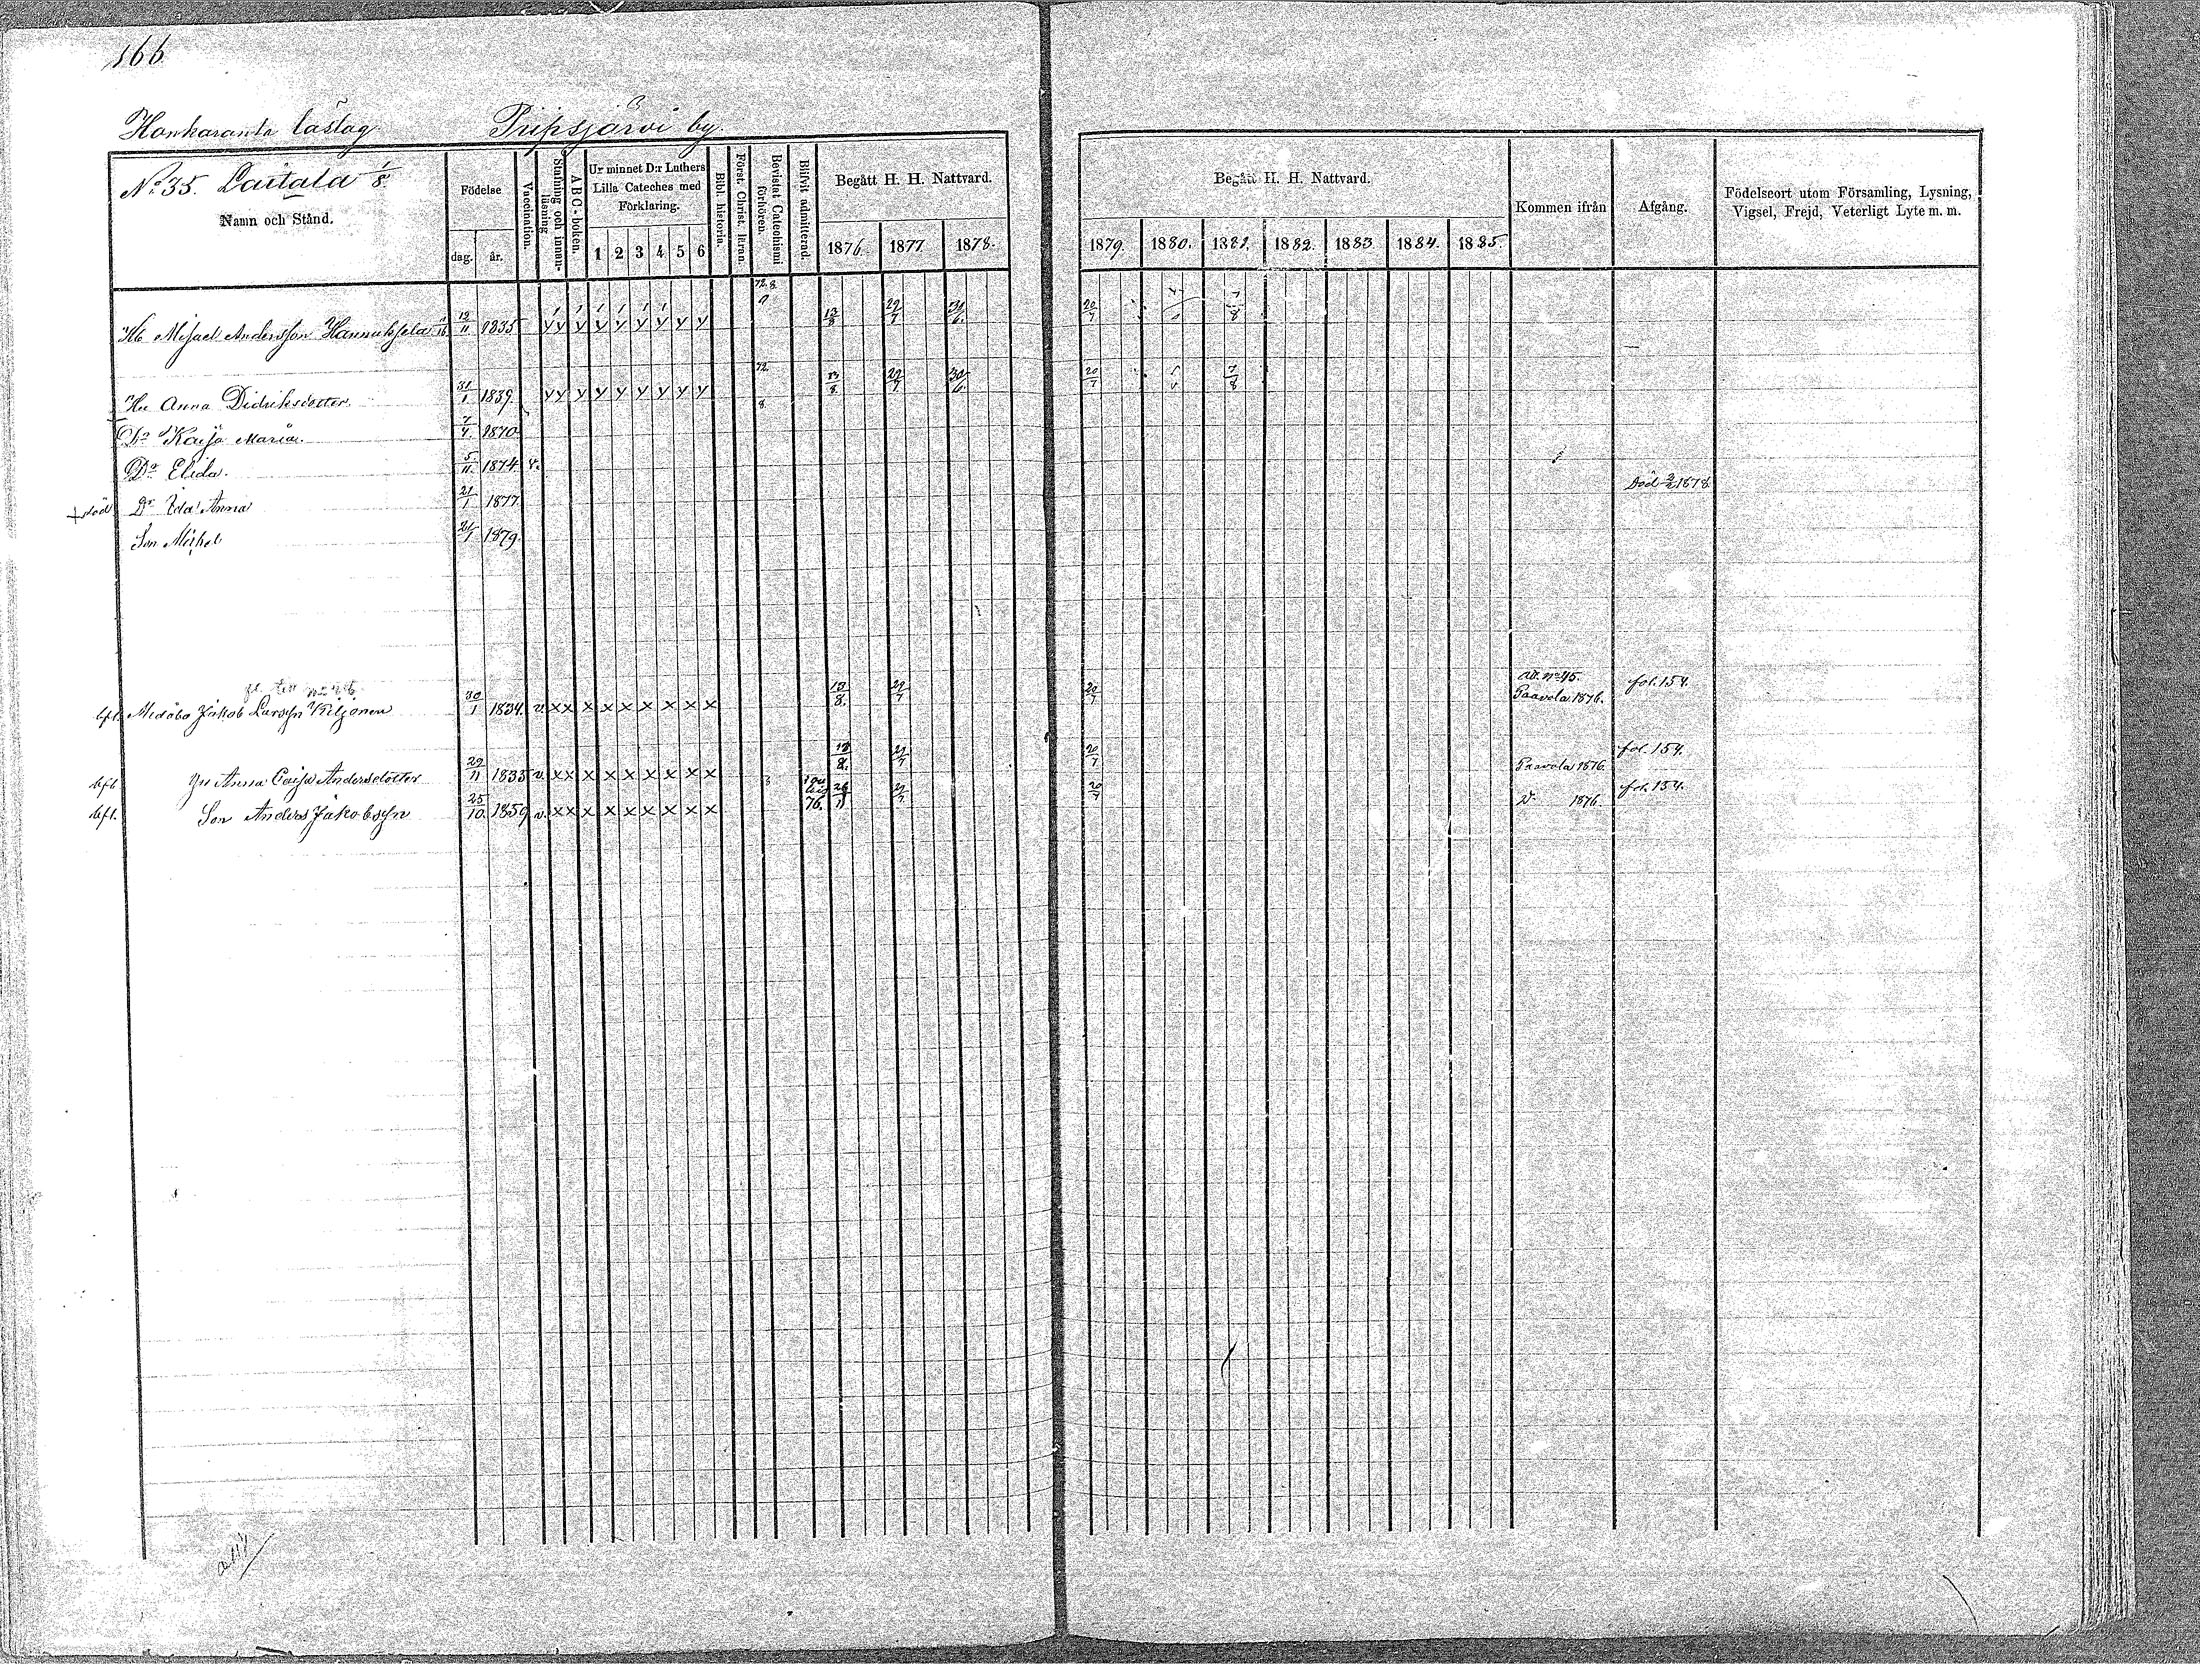 166
Honkaranta läslag Pripsjärvi by.
No 35. Laitala 1/8
Namn och Stånd.
Födelse
dag. år.
Vaccination.
Stafning och innan-läsning.
A B C-boken.
Ur minnet D:r Luthers Lilla Cateches med Förklaring.
1 2 3 4 5 6
Bibl. historia.
Först. Christ. läran.
Bevistat Catechismi förhören.
Blifvit admitterad.
Begått H. H. Nattvard.
1876. 1877. 1878.
Begått H. H. Nattvard.
1879. 1880. 1881. 1882. 1883. 1884. 1885.
Kommen ifrån
Afgång.
Födelseort utom Församling, Lysning, Vigsel, Frejd, Veterligt Lyte m. m.
Misael Andersson 12/11 1835 y y y y y y y y y 13/8 29/7 20/7 7/8
Hu Anna Didriksdotter 31/1 1839 y y y y y y y y y 72. 8 13/8 29/7 30/6 20/7 7/8
Dr Kaisa Maria. 7/4 1870
Dr Elida. 5/11 1874 v.
död Dr Ida Anna 21/1 1877 Död 1878
Son Mikel 21/1 1879.
Jakob Larsson Kiljonen 30/1 1834. v. x x x x x x x x x 13/8. 29/7 20/7 No 45. Paavola 1876. fol. 154.
Hu Anna Caisa Andersdotter 29/11 1833 v. x x x x x x x x x 13/8. 29/7 20/7 Paavola 1876. fol. 154.
Son Anders Jakobsson 25/10. 1859 v. x x x x x x x x x 76. 29/7 20/7 1876. fol. 154.